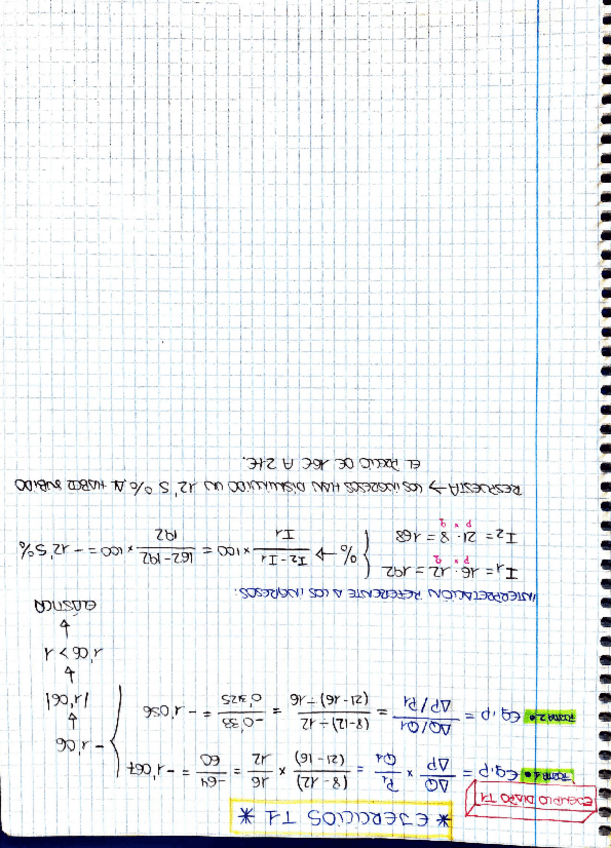 * EJERCICIOS T1 *
EJEMPLO DIAPO T1
FORMA 1: Eq,p = ΔQ/ΔP × P1/Q1 = (8-12)/(21-16) × 16/12 = -64/60 = -1'067
FORMA 2: Eq,p = ΔQ/Q1 / ΔP/P1 = (8-12) ÷ 12 / (21-16) ÷ 16 = -0'33/0'325 = -1'056
-1'06
↓
|1'06|
↓
1'06 > 1
↓
ELÁSTICA
INTERPRETACIÓN REFERENTE A LOS INGRESOS:
I1 = 16 · 12 = 192
P × Q
I2 = 21 · 8 = 168
P × Q
% → I2 - I1 / I1 × 100 = 162-192 / 192 × 100 = -12'5%
RESPUESTA → LOS INGRESOS HAN DISMINUIDO UN 12'5% AL HABER SUBIDO
EL PRECIO DE 16€ A 21€.